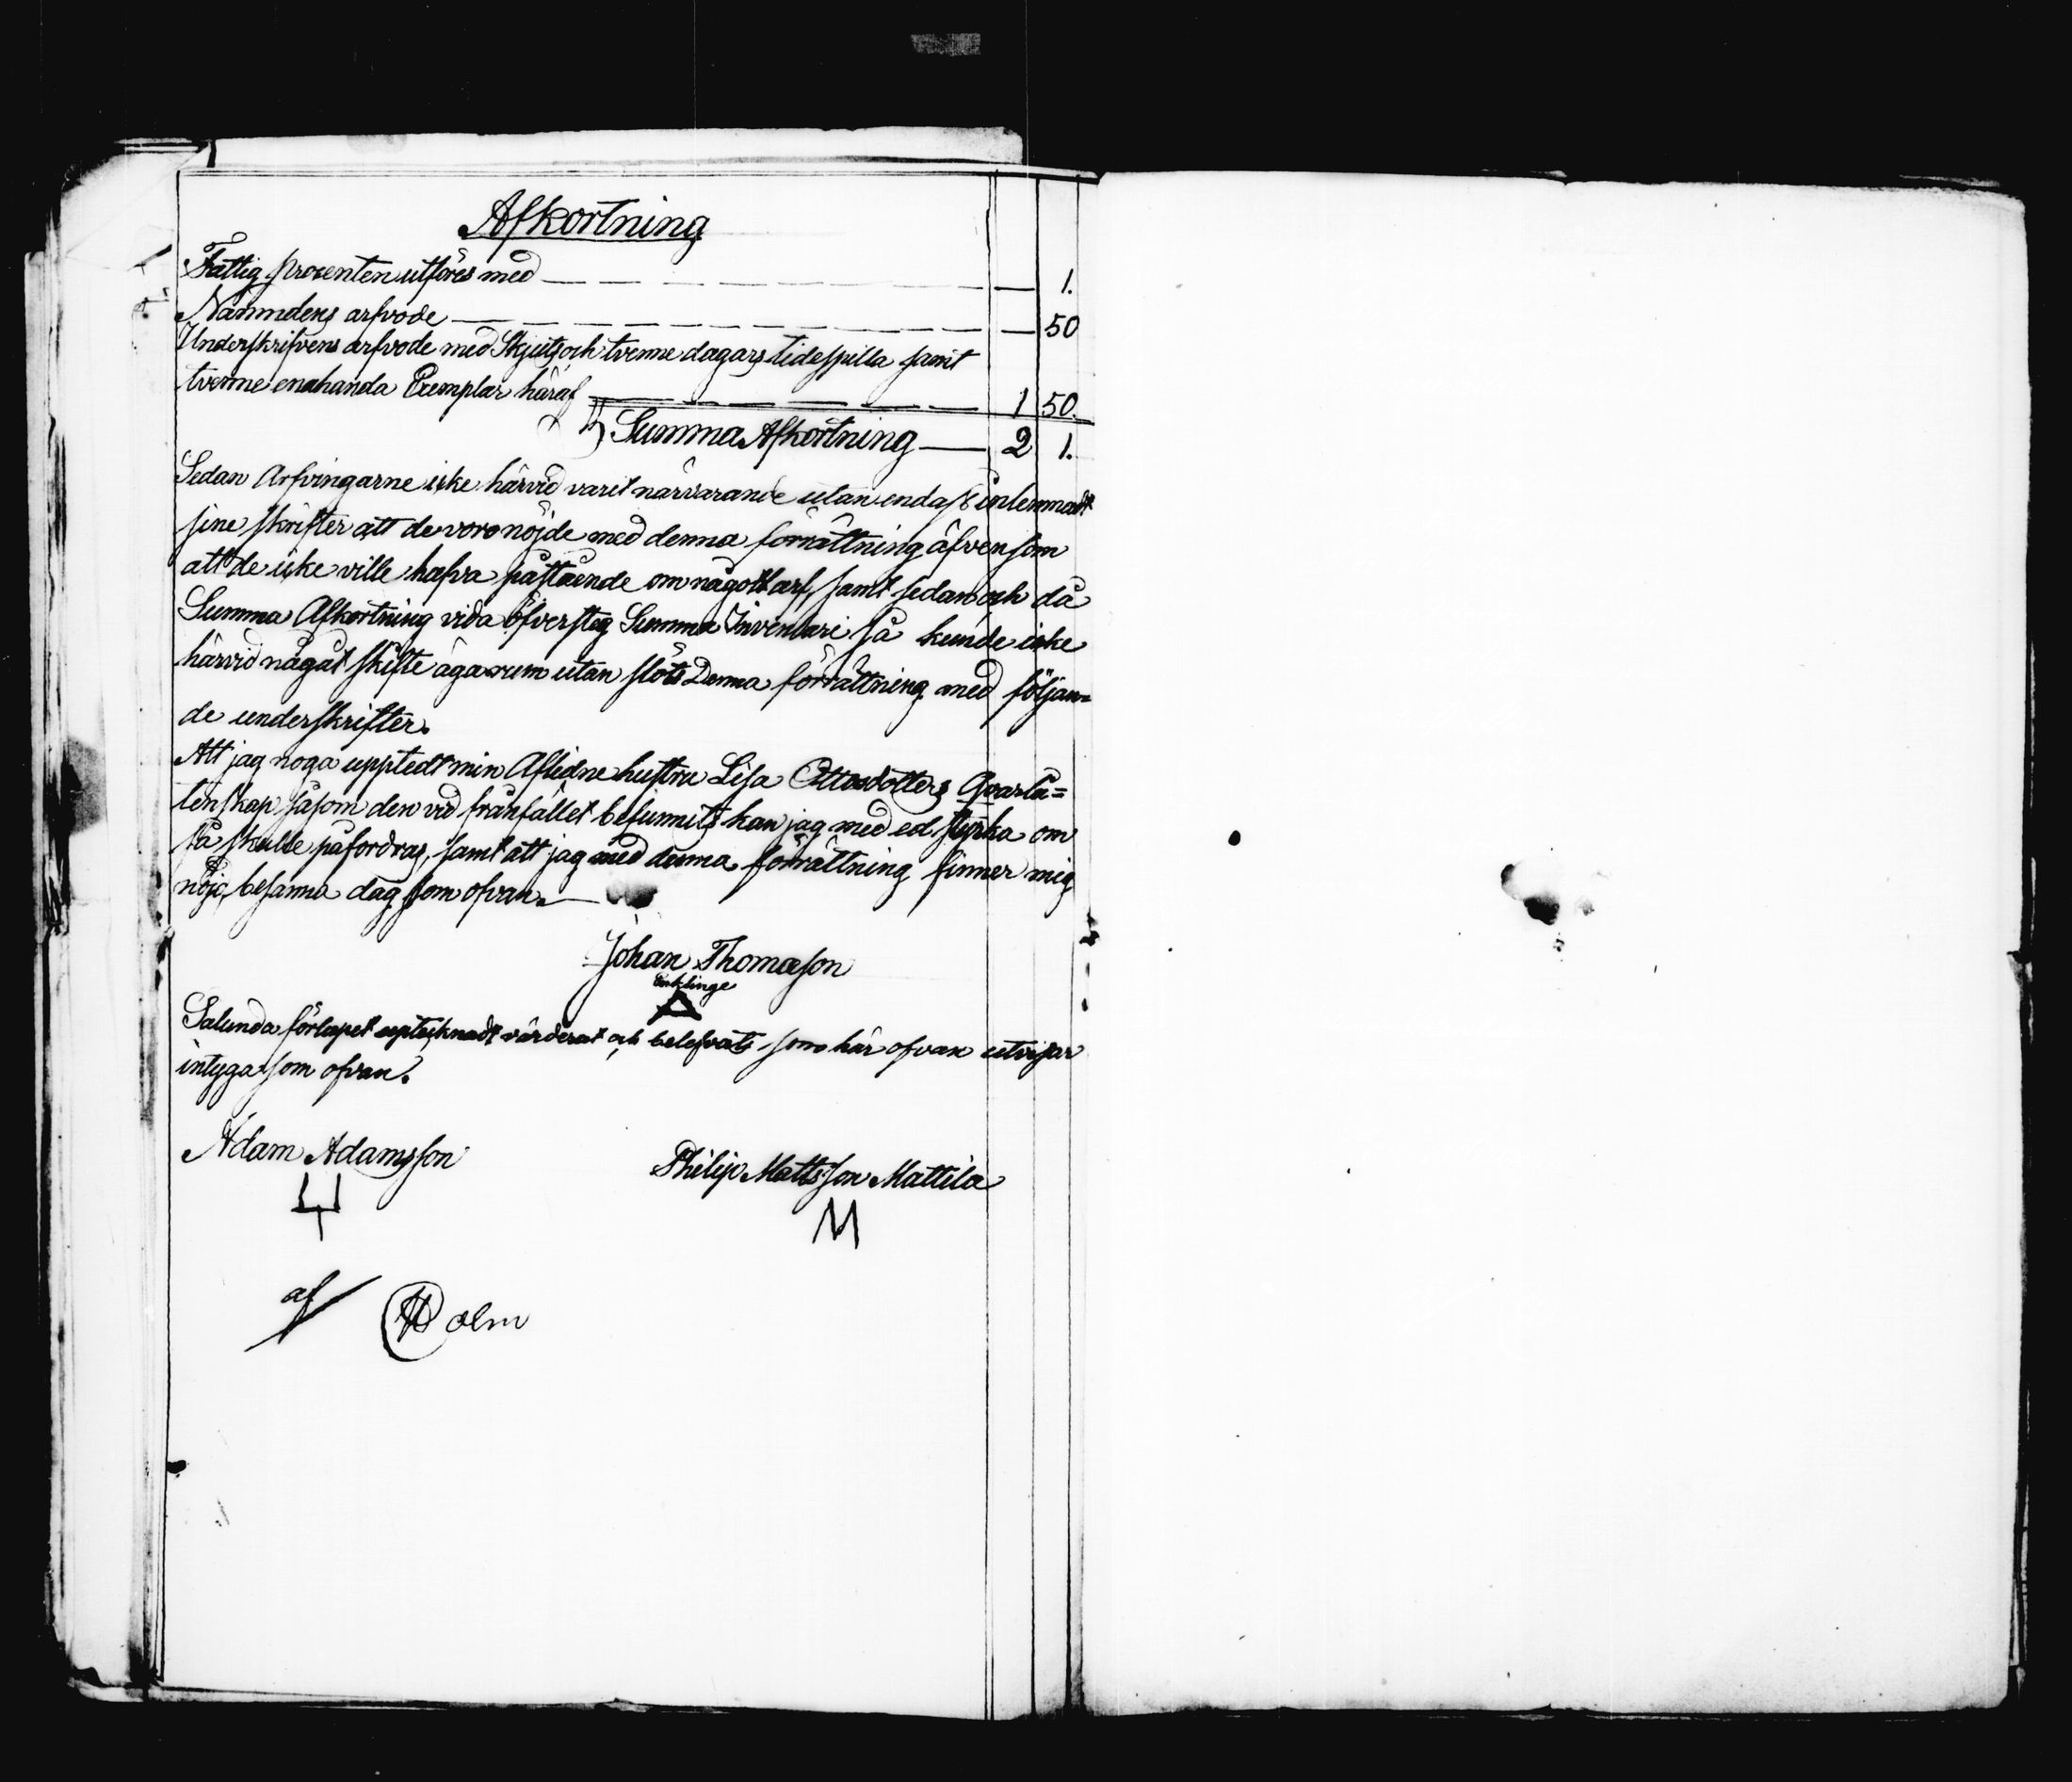 Afkortning
Fattig procenten utföres med — — — — — — — 1.
Nämndens arfvode — — — — — — — — — 50
Underskrifvens arfvode med Skjuts och tvenne dagars tidsspilla samt
tvenne enahanda Exemplar häraf — — — — — 1 50.
Summa Afkortning — 2 1.
Sedan Arfvingarne icke härvid varit närvarande utan endast inlemnadt
sine skrifter att de voro nöjde med denna förrättning äfvensom
att de icke ville hafva påstående om någott arf, samt sedan och då
Summa Afkortning vida öfversteg Summa Inventari så kunde icke
härvid något skifte äga rum utan slöts Denna förrättning med följan=
de underskrifter.
Att jag noga upptedt min Aflidne hustru Lisa Ottosdotters Qvarlå=
tenskap såsom den vid frånfället befunnits kan jag med ed styrka om
så skulle påfordras, samt att jag med denna förrättning finner mig
nöjd, besanna dag som ofvan. —
Johan Thomasson
Enklinge
Salunda förlupet uptecknadt värderat och belefvats som här ofvan utvisar
intyga som ofvan.
Adam Adamsson
Philip Mattsson Mattila
M
af
Holm